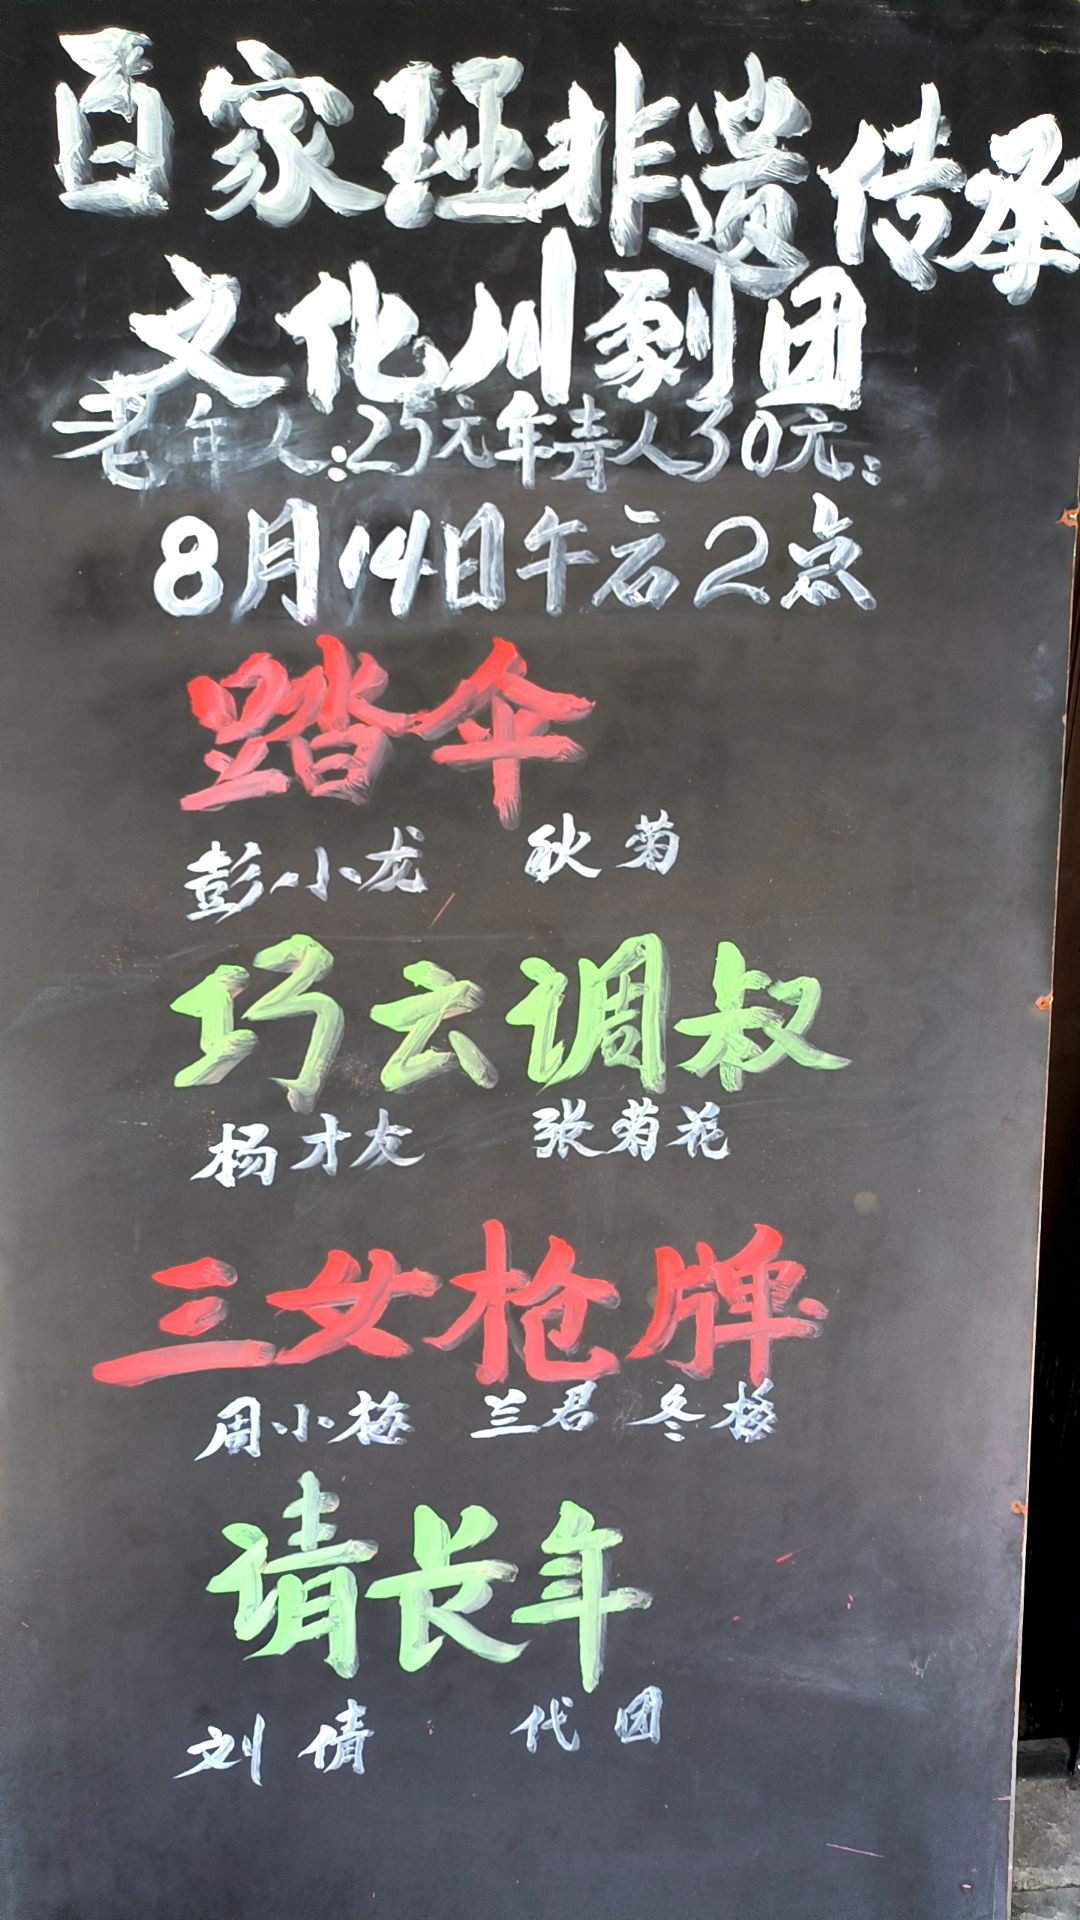 百家班非遗传承
文化川剧团
老年人:25元年青人30元:
8月14日午后2点
踏伞
彭小龙 秋菊
巧云调叔
杨才友 张菊花
三女枪牌
周小梅 兰君 冬梅
请长年
刘倩 代团